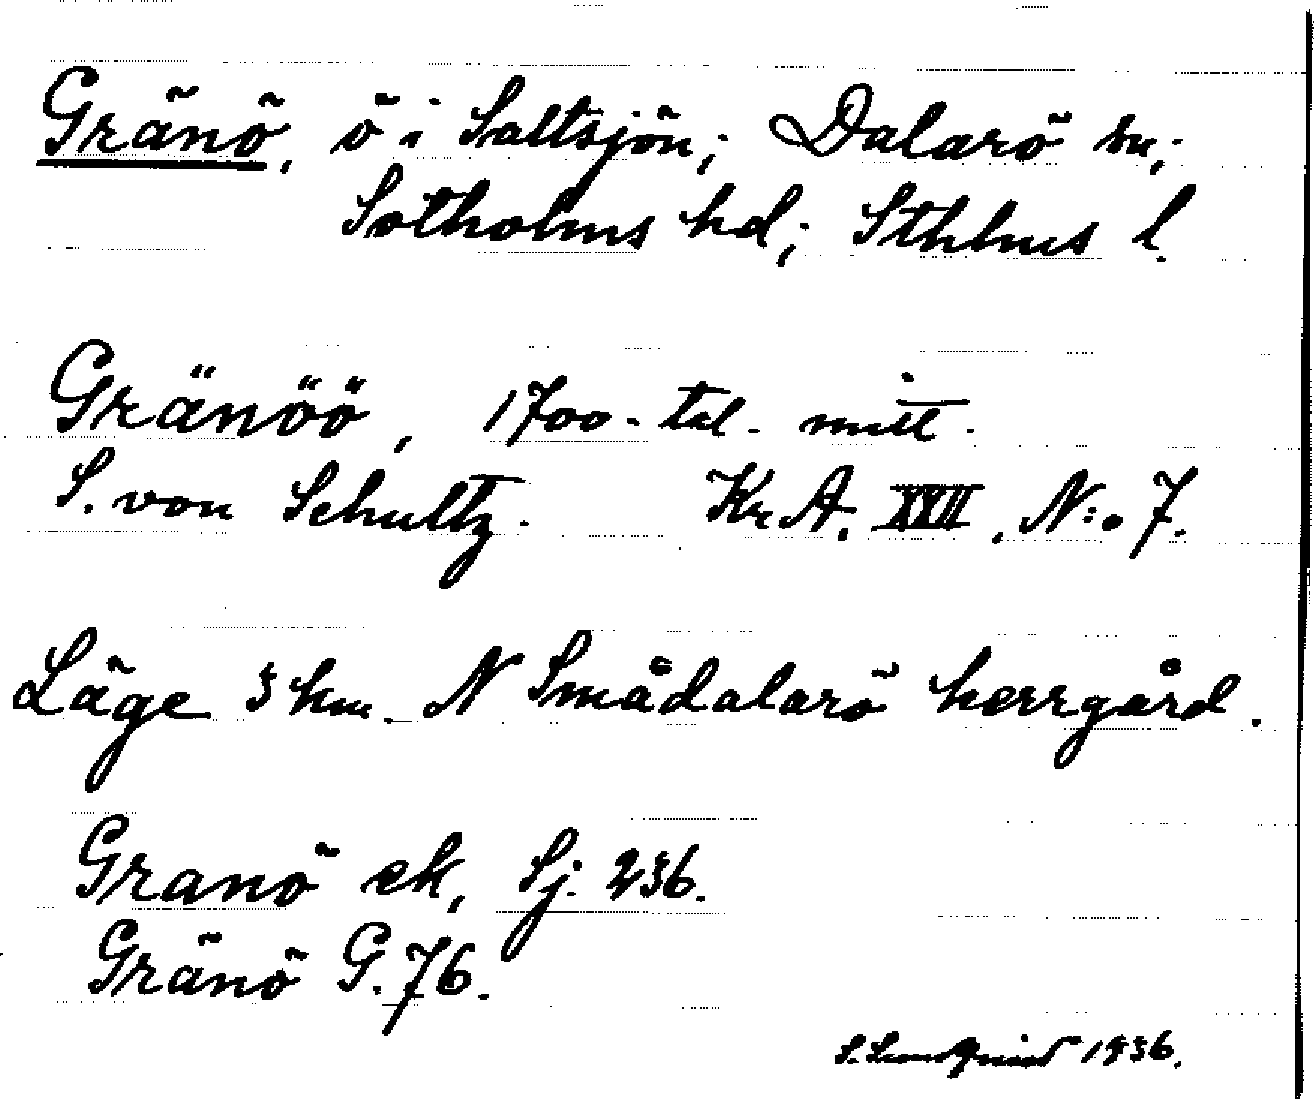 Gränö, ö i Saltsjön; Dalarö sn;
Sotholms hd; Sthlms l.
Gränöö, 1700-tal. mitt.
S. von Schultz. Kr A. XXII, N:o 7.
Läge 3 km. N Smådalarö herrgård.
Granö ek, Sj. 236.
Gränö G. 76.
1936.